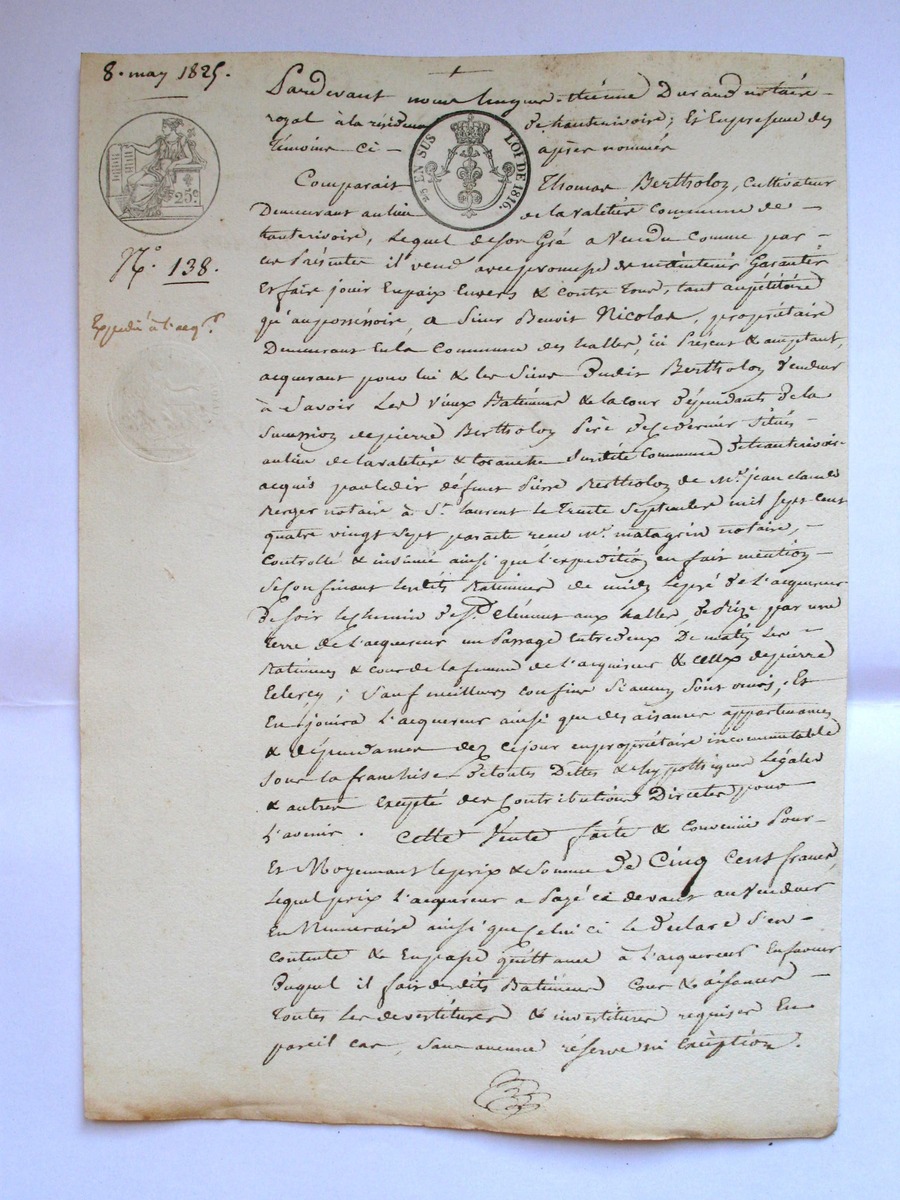 8. may 1825.
25c.
N.o 138.
Expedié à l'acq.r
25 EN SUS LOI DE 1816.
Pardevant nous hugues-étienne Durand notaire-
royal à la résidence de hauterivoire; Et En presence des
témoins ci- après nommés
Comparait Thomas Bertholon, Cultivateur
Demeurant au lieu de la valetière Commune de -
hauterivoire, Lequel de son Gré a vendu Comme par -
ces Présentes il vend avec promesse de maintenir Garantir
Et faire jouir En paix Envers & Contre tous, tant au pétitoire
qu'au possessoire, a Sieur Benoit Nicolas, propriétaire
Demeurant En la Commune des halles, ici Present & acceptant,
acquerant pour lui & les Siens dudit Bertholon Vendeur
à Savoir Les Vieux Batimens & la cour Dépendants de la
Succession de pierre Bertholon Père de ce dernier Situés -
au lieu de la valetière & susdite Commune de hauterivoire
acquis par ledit défunt Pierre Bertholon de M.e jean claude
Berger notaire à St. Laurent le Trente Septembre mil sept cent
quatre vingt sept parait recu M.e matagrin notaire, -
Controllé & insinué ainsi que l'expedition en fait mention -
Se Confinant lesdits Batimens de midi Le pré de l'acquereur
De soir le chemin de St. Clément aux halles, De Bize par une
terre de l'acquereur un Passage Entredeux De matin Les -
Batimens & cour de la femme de l'acquereur & Ceux de pierre
Leclerq; Sauf meilleurs confins Si aucuns Sont vrais, Et
En jouira L'acquereur ainsi que des aisances appartenances
& dépendances dez ce jour en propriétaire incommutable
Sous la franchise De toutes Dettes & hypothéques Légales
& autres Excepté des Contributions Directes pour
L'avenir. Cette Vente faite & Convenüe Pour-
Et Moyennant le prix & Somme De Cinq Cent francs,
Lequel prix L'acquereur a Payé ci devant au Vendeur
En Numeraire ainsi que Celui ci Le Declare S'en -
contente & En passe quittance à L'acquereur En faveur
Duquel il fait desdits Batimens Cour & aisances -
toutes Les devestitures & investitures requises En
pareil cas, Sans aucune réserve ni Exception.